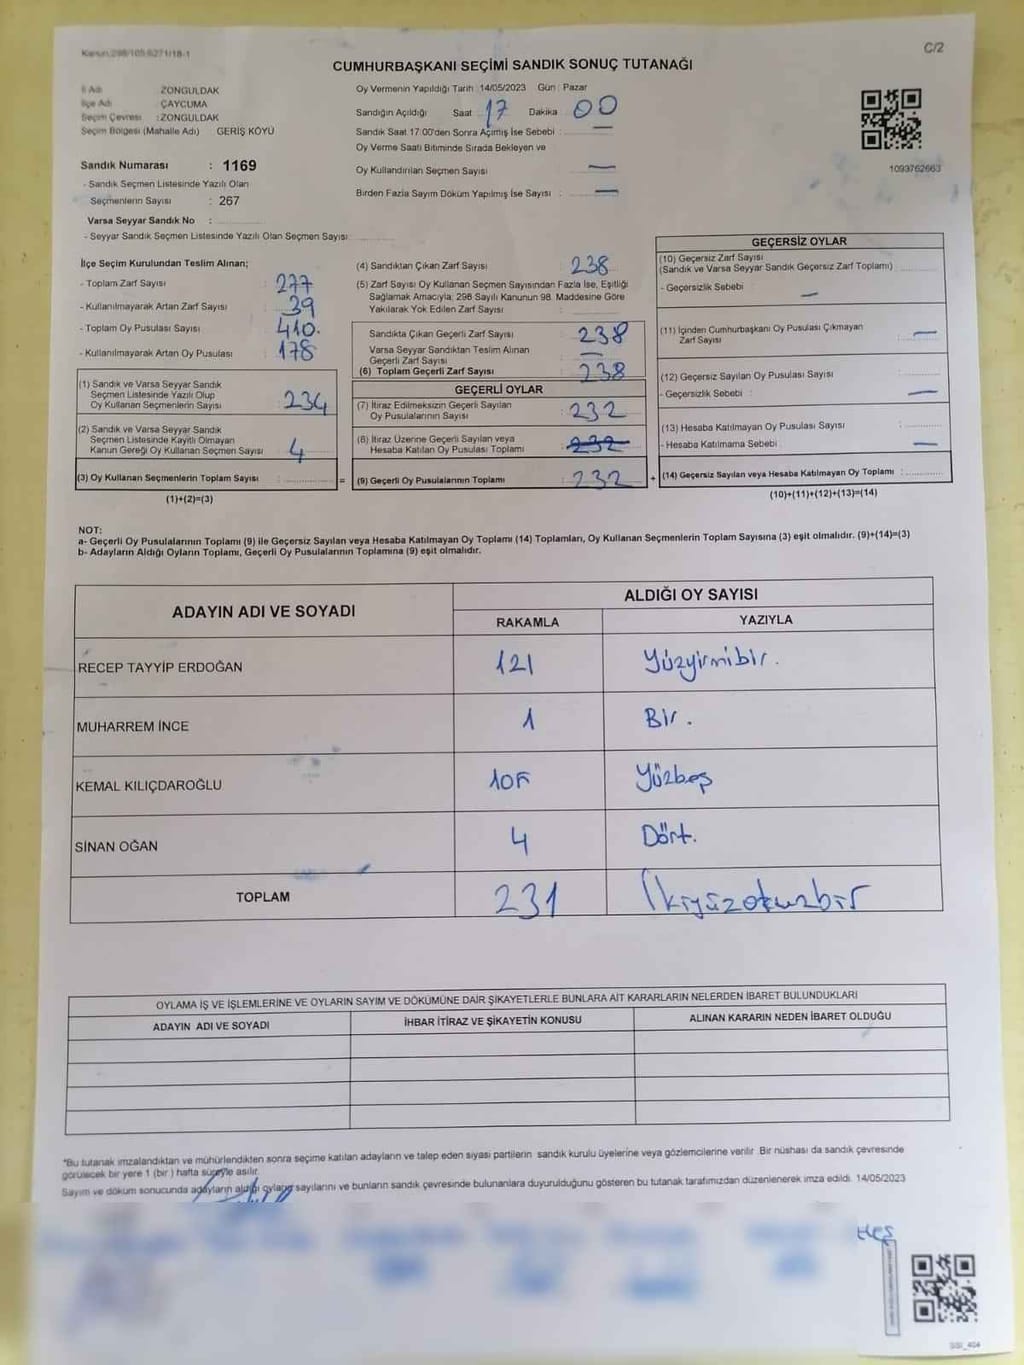 Kanun:298/105.6271/18-1
C/2
CUMHURBAŞKANI SEÇİMİ SANDIK SONUÇ TUTANAĞI
İl Adı ZONGULDAK
İlçe Adı ÇAYCUMA
Seçim Çevresi :ZONGULDAK
Seçim Bölgesi (Mahalle Adı) GERİŞ KÖYÜ
Sandık Numarası : 1169
- Sandık Seçmen Listesinde Yazılı Olan
Seçmenlerin Sayısı : 267
Varsa Seyyar Sandık No :
- Seyyar Sandık Seçmen Listesinde Yazılı Olan Seçmen Sayısı:
Oy Vermenin Yapıldığı Tarih 14/05/2023 Gün : Pazar
Sandığın Açıldığı Saat 17 Dakika 00
Sandık Saat 17.00'den Sonra Açımış İse Sebebi : —
Oy Verme Saati Bitiminde Sırada Bekleyen ve
Oy Kullandırılan Seçmen Sayısı —
Birden Fazla Sayım Döküm Yapılmış İse Sayısı : —
1093762663
İlçe Seçim Kurulundan Teslim Alınan;
- Toplam Zarf Sayısı : 277
- Kullanılmayarak Artan Zarf Sayısı : 39
- Toplam Oy Pusulası Sayısı : 410.
- Kullanılmayarak Artan Oy Pusulası : 178
(1) Sandık ve Varsa Seyyar Sandık
Seçmen Listesinde Yazılı Olup
Oy Kullanan Seçmenlerin Sayısı : 234
(2) Sandık ve Varsa Seyyar Sandık
Seçmen Listesinde Kayıtlı Olmayan
Kanun Gereği Oy Kullanan Seçmen Sayısı : 4
(3) Oy Kullanan Seçmenlerin Toplam Sayısı :
(1)+(2)=(3)
(4) Sandıktan Çıkan Zarf Sayısı : 238
(5) Zarf Sayısı Oy Kullanan Seçmen Sayısından Fazla İse, Eşitliği
Sağlamak Amacıyla, 298 Sayılı Kanunun 98. Maddesine Göre
Yakılarak Yok Edilen Zarf Sayısı :
Sandıkta Çıkan Geçerli Zarf Sayısı : 238
Varsa Seyyar Sandıktan Teslim Alınan
Geçerli Zarf Sayısı : —
(6) Toplam Geçerli Zarf Sayısı : 238
GEÇERLİ OYLAR
(7) İtiraz Edilmeksizin Geçerli Sayılan
Oy Pusulalarının Sayısı : 232
(8) İtiraz Üzerine Geçerli Sayılan veya
Hesaba Katılan Oy Pusulası Toplamı : 232
= (9) Geçerli Oy Pusulalarının Toplamı : 232
GEÇERSİZ OYLAR
(10) Geçersiz Zarf Sayısı
(Sandık ve Varsa Seyyar Sandık Geçersiz Zarf Toplamı) :
- Geçersizlik Sebebi : —
(11) İçinden Cumhurbaşkanı Oy Pusulası Çıkmayan
Zarf Sayısı : —
(12) Geçersiz Sayılan Oy Pusulası Sayısı :
- Geçersizlik Sebebi : —
(13) Hesaba Katılmayan Oy Pusulası Sayısı :
- Hesaba Katılmama Sebebi : —
+ (14) Geçersiz Sayılan veya Hesaba Katılmayan Oy Toplamı :
(10)+(11)+(12)+(13)=(14)
NOT:
a- Geçerli Oy Pusulalarının Toplamı (9) ile Geçersiz Sayılan veya Hesaba Katılmayan Oy Toplamı (14) Toplamları, Oy Kullanan Seçmenlerin Toplam Sayısına (3) eşit olmalıdır. (9)+(14)=(3)
b- Adayların Aldığı Oyların Toplamı, Geçerli Oy Pusulalarının Toplamına (9) eşit olmalıdır.
ADAYIN ADI VE SOYADI ALDIĞI OY SAYISI
RAKAMLA YAZIYLA
RECEP TAYYİP ERDOĞAN 121 Yüzyirmibir.
MUHARREM İNCE 1 Bir.
KEMAL KILIÇDAROĞLU 105 Yüzbeş
SİNAN OĞAN 4 Dört.
TOPLAM 231 İkiyüzotuzbir
OYLAMA İŞ VE İŞLEMLERİNE VE OYLARIN SAYIM VE DÖKÜMÜNE DAİR ŞİKAYETLERLE BUNLARA AİT KARARLARIN NELERDEN İBARET BULUNDUKLARI
ADAYIN ADI VE SOYADI İHBAR İTİRAZ VE ŞİKAYETİN KONUSU ALINAN KARARIN NEDEN İBARET OLDUĞU
*Bu tutanak imzalandıktan ve mühürlendikten sonra seçime katılan adayların ve talep eden siyasi partilerin sandık kurulu üyelerine veya gözlemcilerine verilir. Bir nüshası da sandık çevresinde
görülecek bir yere 1 (bir) hafta süreyle asılır.
Sayım ve döküm sonucunda adayların aldığı oyların sayılarını ve bunların sandık çevresinde bulunanlara duyurulduğunu gösteren bu tutanak tarafımızdan düzenlenerek imza edildi. 14/05/2023